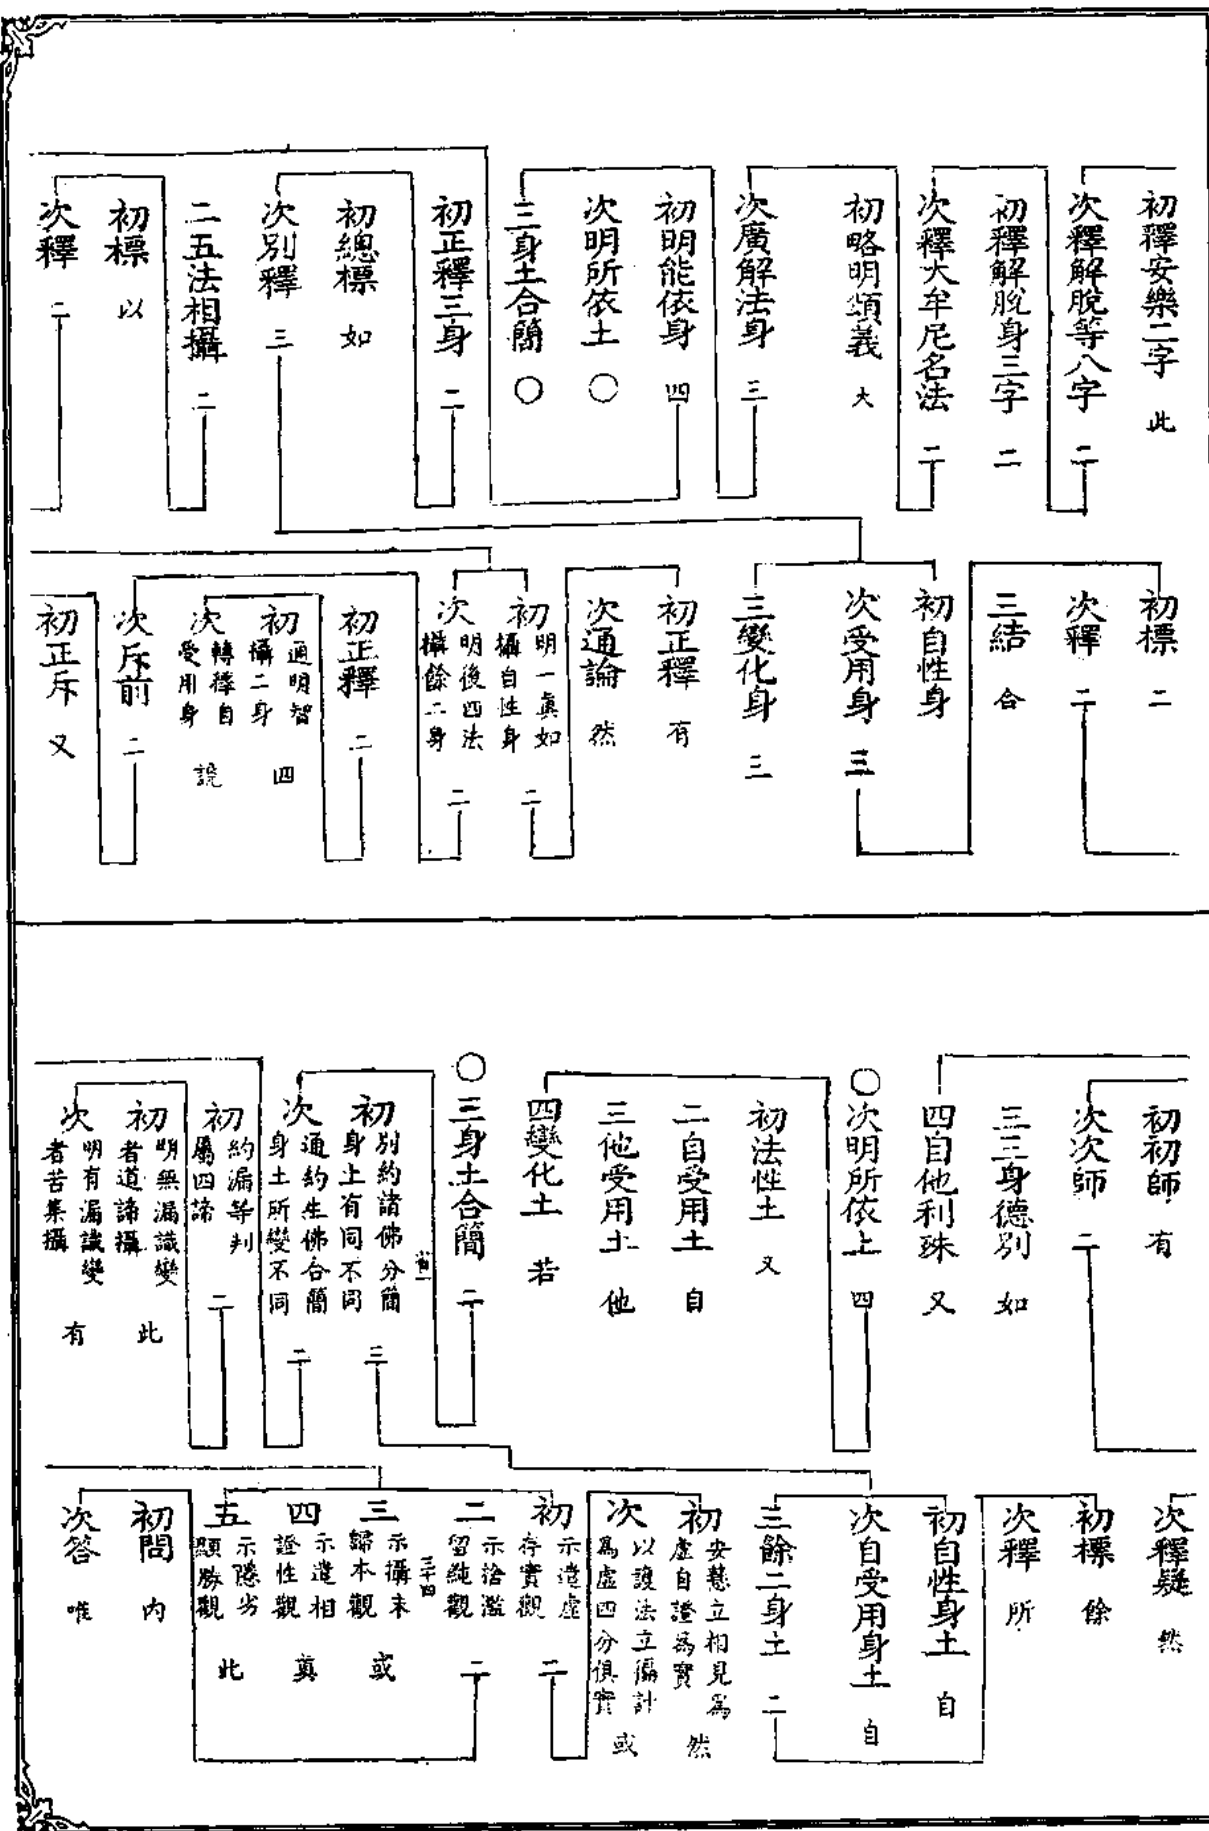 初釋安樂二字 此
次釋解脫等八字 二
初釋解脫身三字 二
次釋大牟尼名法 二
初略明頌義 大
次廣解法身 三
初明能依身 四
次明所依土 ○
三身土合簡 ○
初正釋三身 二
初總標 如
次別釋 三
二五法相攝 二
初標 以
次釋 二
初標 二
次釋 二
三結 合
初自性身
次受用身 三
三變化身 三
初正釋 有
次通論 然
初 明一真如攝自性身 二
次 明後四法攝餘二身 二
初正釋 二
初 通明智攝二身 四
次 轉釋自受用身 說
次斥前 二
初正斥 又
初初師 有
次次師 二
三三身德別 如
四自他利殊 又
○次明所依土 四
初法性土 又
二自受用土 自
三他受用土 他
四變化土 若
○三身土合簡 二
初 別約諸佛分簡身土有同不同 三
次 通約生佛合簡身土所變不同 二
初 約漏等判屬四諦 二
初 明無漏識變者道諦攝 此
次 明有漏識變者苦集攝 有
次釋疑 然
初標 餘
次釋 所
初自性身土 自
次自受用身土 自
三餘二身土 二
初 安慧立相見為虛自證為實 然
次 以護法立徧計為虛四分俱實 或
初 示遣虛存實觀 二
二 示捨濫留純觀 二
三十四
三 示攝末歸本觀 或
四 示遣相證性觀 真
五 示隱劣顯勝觀 此
初問 內
次答 唯